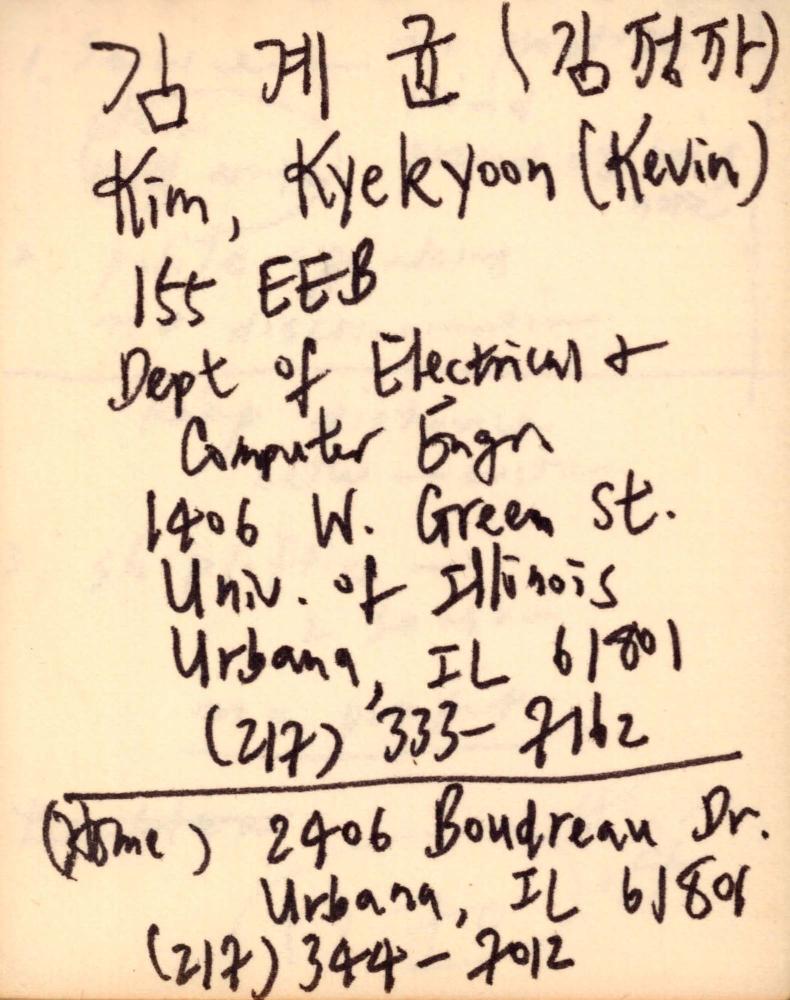 김 계 균 (김정자)
Kim, Kyekyoon (Kevin)
155 EEB
Dept of Electrical &
Computer Engn
1406 W. Green St.
Univ. of Illinois
Urbana, IL 61801
(217) 333-7162
(Home) 2406 Boudreau Dr.
Urbana, IL 61801
(217) 344-7012